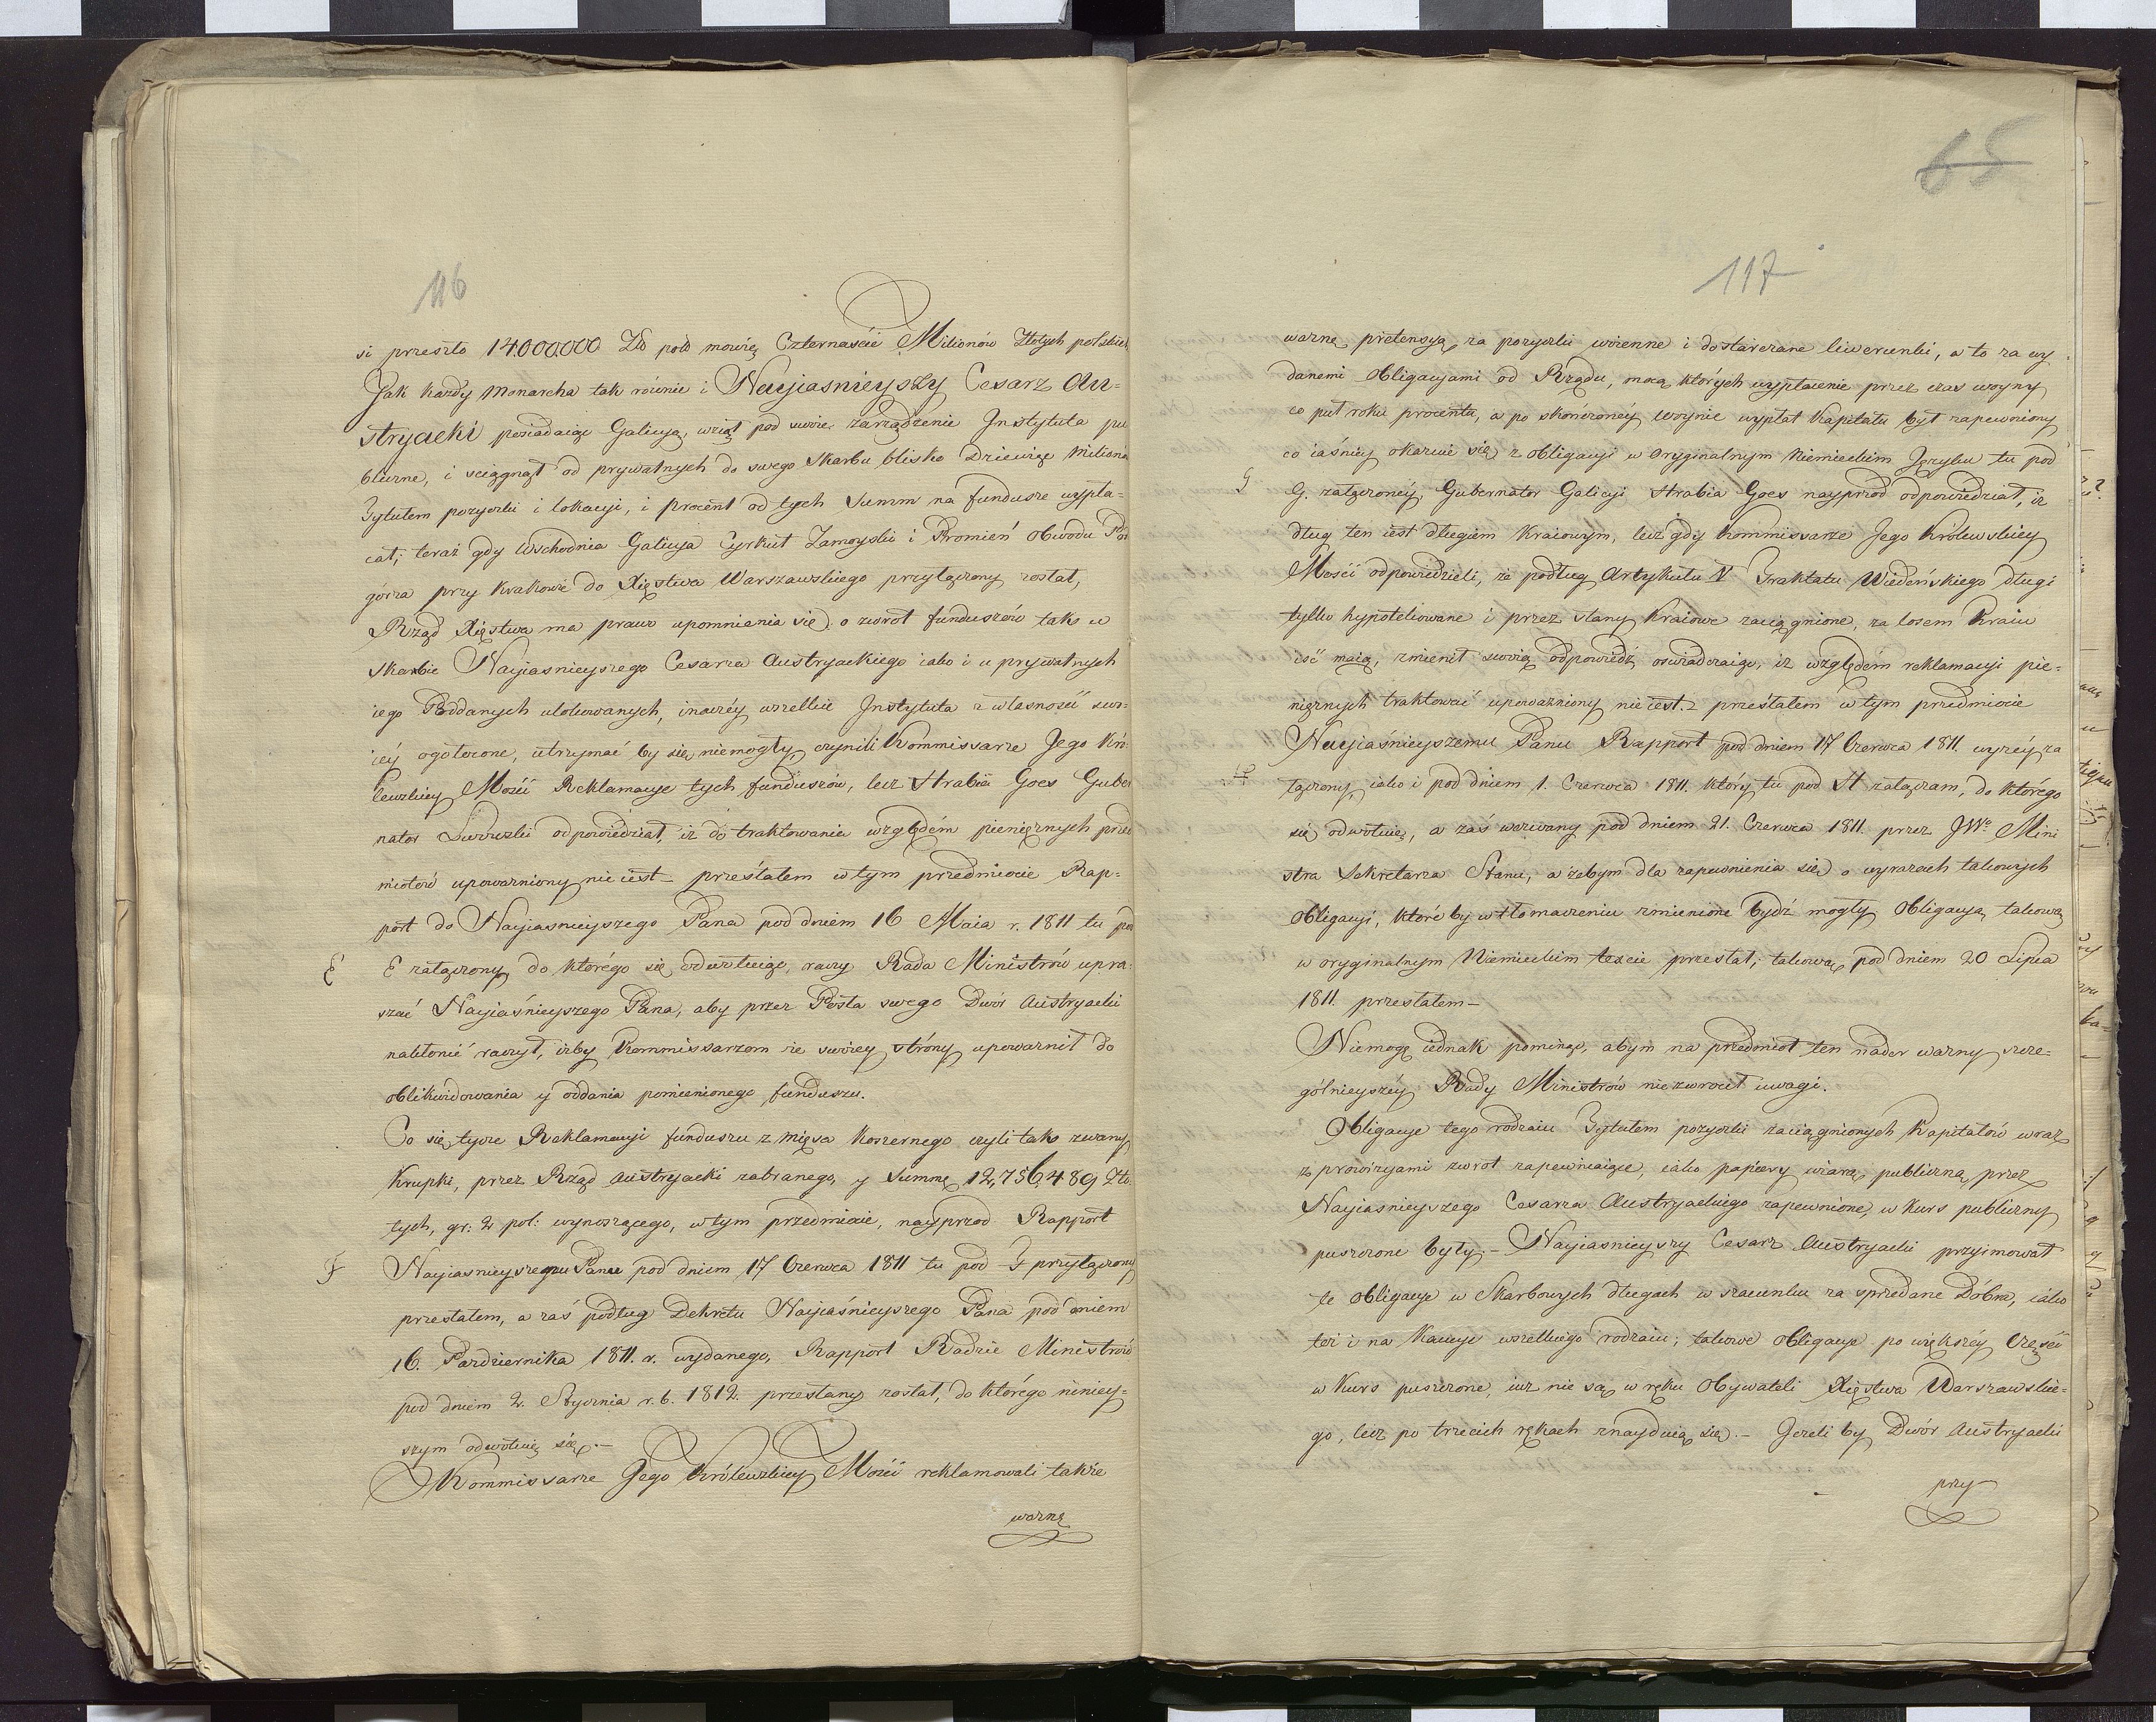 116
si przeszło 14.000.000 Zło pols mowię Czternaście Milionów Złotych polskich
Jak każdy Monarcha tak równie i Nayiasnieyszy Cesarz Au-
stryacki posiadaiąc Galicyą, wziął pod swoie zarządzenie Instytuta pu
bliczne, i sciągnął od prywatnych do swego Skarbu blisko Dziewięć Miliona
Tytułem pozyczki i lokacyi, i procent od tych Summ na fundusze wypła-
cał; teraz gdy Wschodnia Galicya Cyrkuł Zamoyski i Promień obwodu Pod
górza przy Krakowie do Xięstwa Warszawskiego przyłączony został,
Rząd Xięstwa ma prawo upomnienia się, o zwrot funduszów tak w
Skarbie Nayiasnieyszego Cesarza Austryackiego iako i u prywatnych
iego Poddanych ulokowanych, inaczéy wszelkie Instytuta z własności swo-
iéy ogołocone, utrzymać by się niemogły, czynili Kommissarze Jego Kró
lewskiey Mości Reklamacye tych funduszów, lecz Hrabia Goes Guber
nator Lwowski odpowiedział, iż do traktowania względem pieniężnych przed
miotów upoważniony nie iest – przesłałem w tym przedmiocie Rap-
port do Nayiasnieyszego Pana pod dniem 16 Maia r. 1811 tu pod
E
E załączony, do którego się odwołuiąc, raczy Rada Ministrów upra-
szać Nayiaśnieyszego Pana, aby przez Posła swego Dwór Austryacki
nakłonić raczył, iżby Kommissarzom ze swoiey strony upoważnił do
oblikwidowania y oddania pomienionego funduszu.
Co się tycze Reklamacyi funduszu z mięsa koszernego czyli tak zwany
Krupki, przez Rząd Austryacki zabranego, y Summę 12,756,489 Zło
tych, gr: 2 pol: wynoszącego, w tym przedmiocie, nayprzod Rapport
F
Nayiasnieyszemu Panu pod dniem 17 Czerwca 1811 tu pod F przyłączony
przesłałem, a zaś podług Dekretu Nayiaśnieyszego Pana pod dniem
16. Pazdziernika 1811. r. wydanego, Rapport Radzie Ministrów
pod dniem 2. Stycznia r. b. 1812. przesłany został, do którego niniey-
szym odwołuię się. –
Kommissarze Jego Królewskiey Mości reklamowali także
ważną
65
117
ważną pretensyą, za pozyczki woienne i dostarczane liwerunki, a to za wy
danemi obligacyami od Rządu, mocą których wypłacenie przez czas woyny
co puł roku procentu, a po skończonéy woynie wypłat Kapitału był zapewniony
co iaśniey okazuie się z obligacyi w Oryginalnym Niemieckim Języku tu pod
G
G. załączonéy, Gubernator Galicyi Hrabia Goes nayprzod odpowiedział, iż
dług ten iest długiem Kraiowym, lecz gdy Kommissarze Jego Królewskiey
Mości odpowiedzieli, że podług Artykułu V Traktatu Wiedeńskiego długi
tylko hypotekowane i przez stany Kraiowe zaciągnione, za losem Kraiu
iść maią, zmienił swoią odpowiedź oswiadczaiąc, iż względem reklamacyi pie-
niężnych traktować upoważniony nie iest. – przesłałem w tym przedmiocie
Nayiaśnieyszemu Panu Rapport pod dniem 17 Czerwca 1811. wyżéy za
H
łączony, iako i pod dniem 1. Czerwca 1811. który tu pod H załączam, do którego
się odwołuię, a zaś wezwany pod dniem 21. Czerwca 1811. przez JWo Mini
stra Sekretarza Stanu, ażebym dla zapewnienia się o wyrazach takowych
Obligacyi, które by w tłomaczeniu zmienione bydź mogły Obligacyą takową
w oryginalnym Niemieckim texcie przesłał; takową pod dniem 20 Lipca
1811. przesłałem –
Niemogę iednak pominąć, abym na przedmiot ten nader ważny szcze-
gólnieyszéy Rady Ministrów niezwrocił uwagi.
Obligacye tego rodzaiu Tytułem pozyczki zaciągnionych Kapitałów wraz
z prowizyami zwrot zapewniaiące, iako papiery wiarą publiczną przez
Nayiasnieyszego Cesarza Austryackiego zapewnione, w Kurs publiczny
puszczone były. – Nayiasnieyszy Cesarz Austryacki przyimował
te obligacye w Skarbowych długach w szacunku za sprzedane Dobra, iako
też i na Kaucye wszelkiego rodzaiu; takowe obligacye po większéy Części
w Kurs puszczone, iuż nie są w ręku Obywateli Xięstwa Warszawskie-
go, lecz po trzecich rękach znayduią się. – Jeżeli by Dwór Austryacki
przy